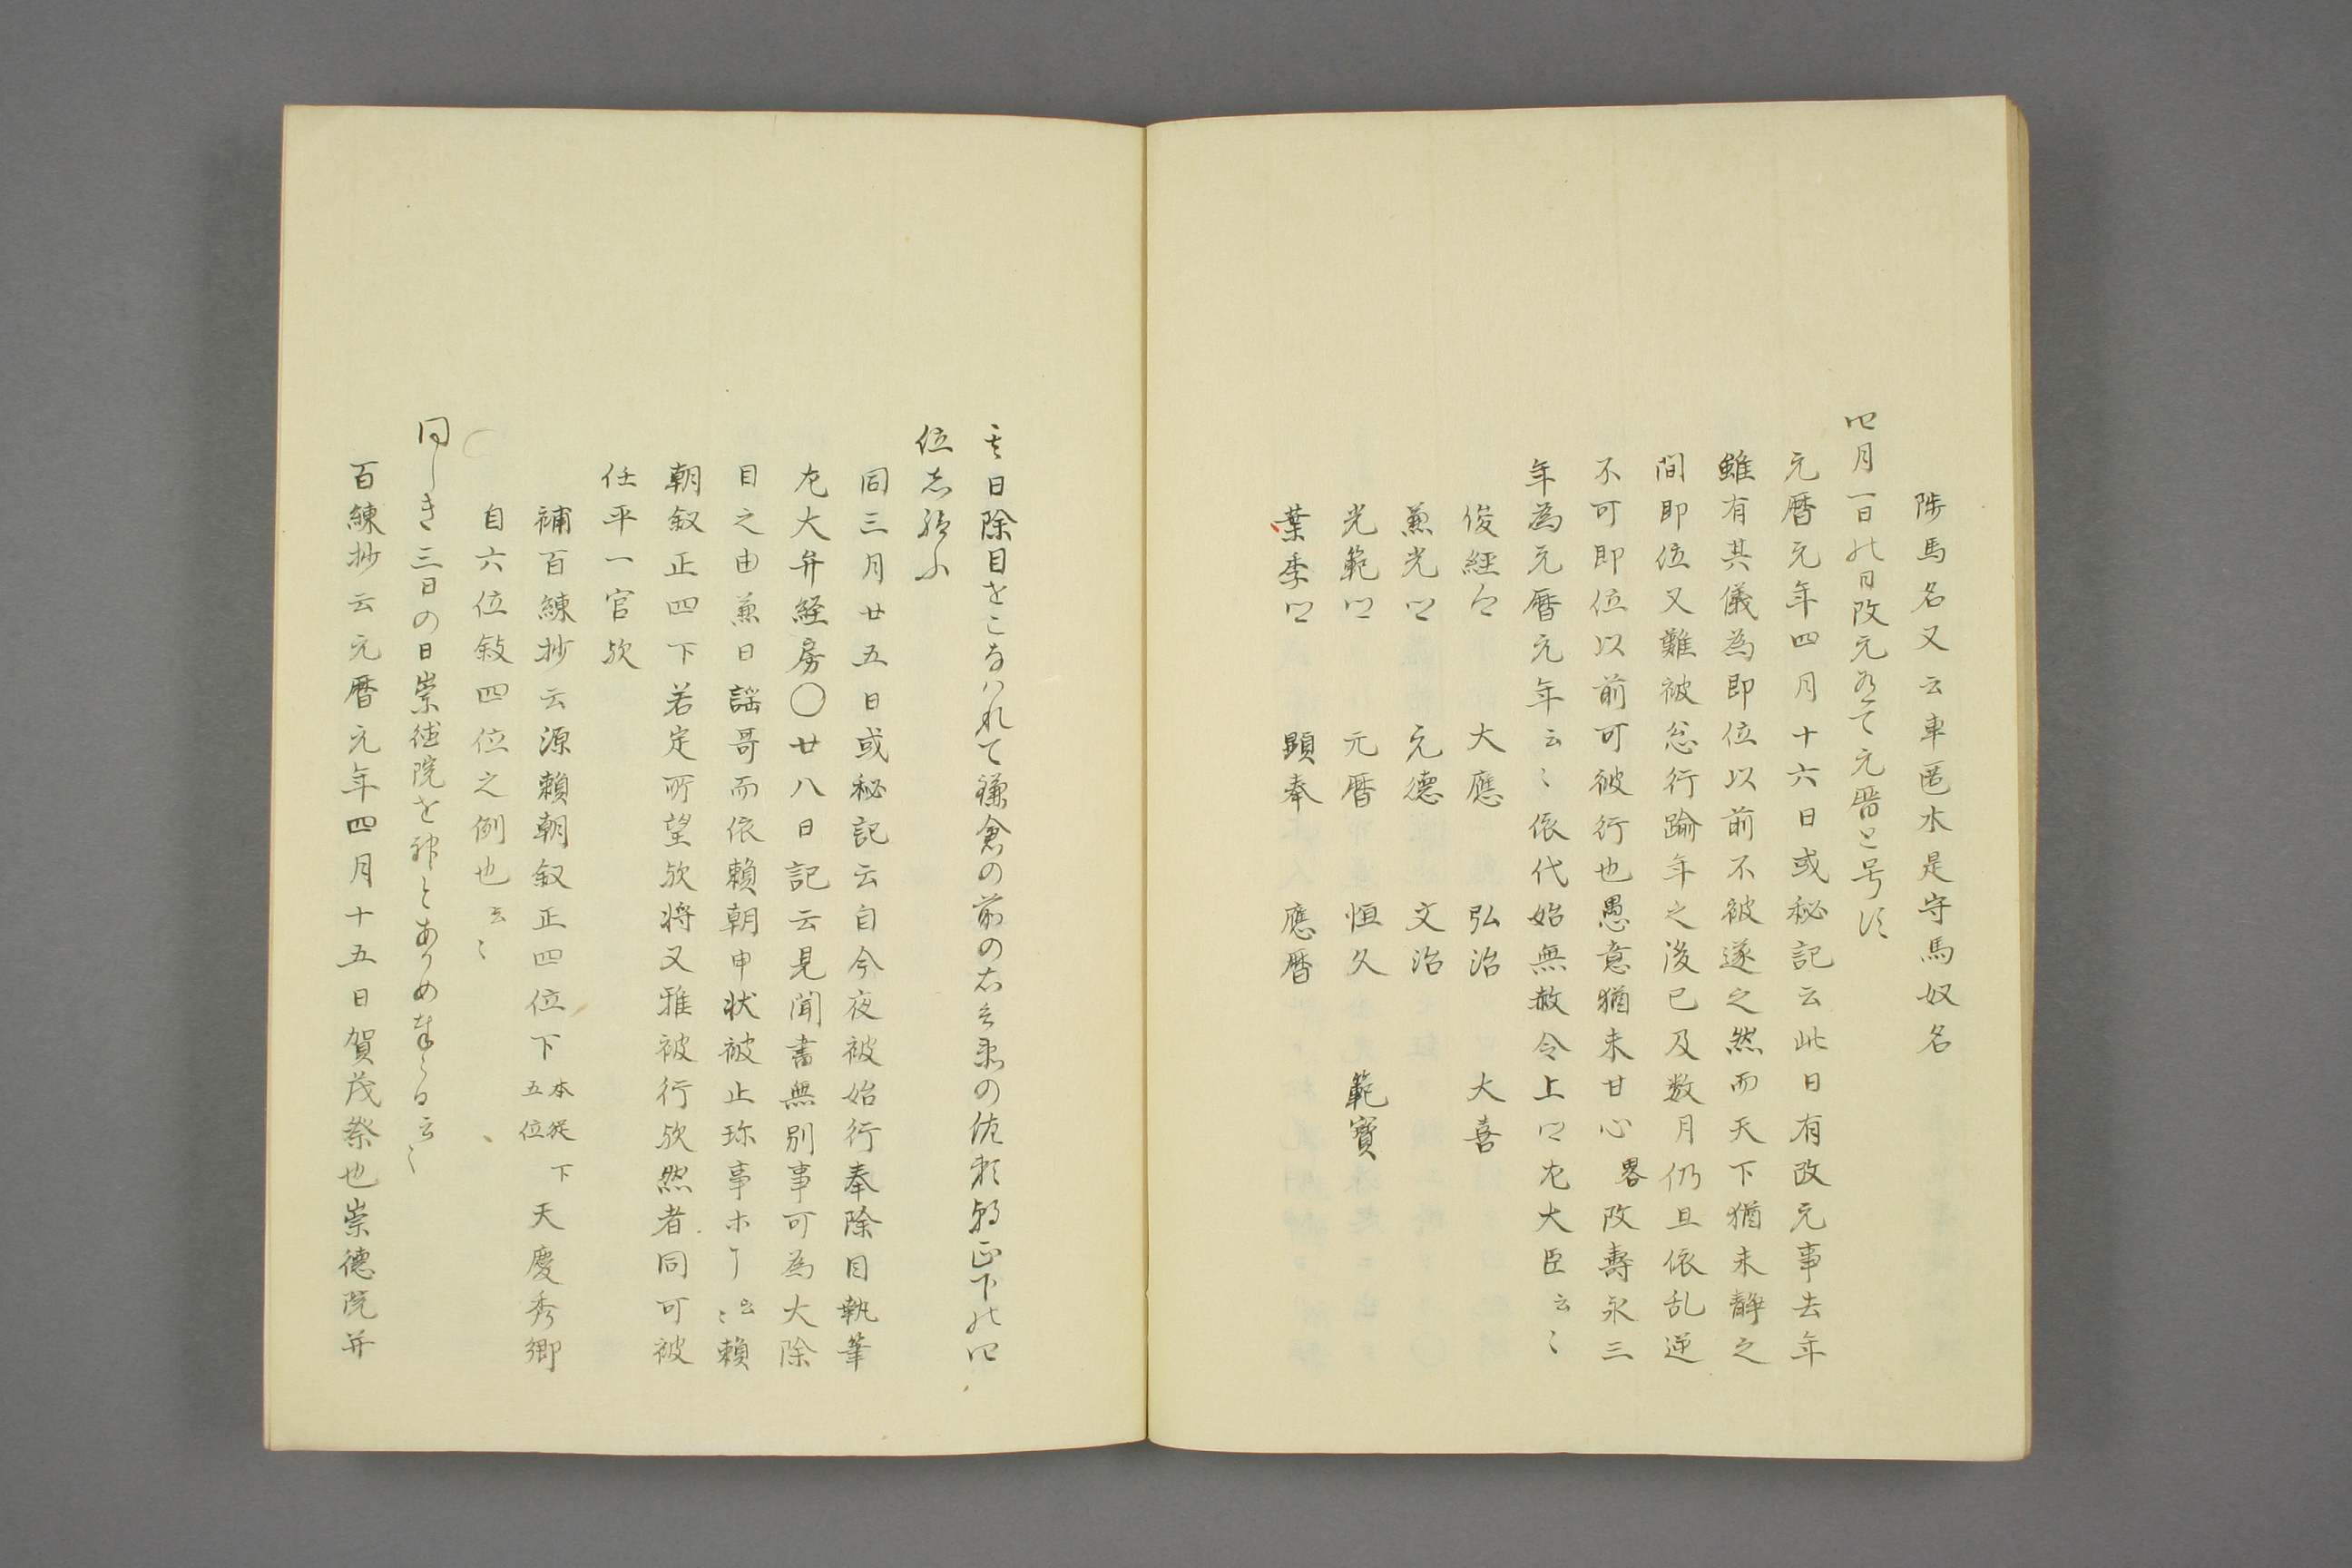 陟馬名又云車匿水是守馬奴名
四月一日の日改元有て元暦と号す
元暦元年四月十六日或秘記云此日有改元事去年
雖有其儀為即位以前不被遂之然而天下猶未静之
間即位又難被忩行踰年之後已及数月仍且依乱逆
不可即位以前可被行也愚意猶未甘心畧改壽永三
年為元暦元年云〻依代始無赦令上卿左大臣云〻
俊経卿　大應　弘治　大喜
兼光卿　元德　文治
光範卿　元暦　恒久　範寶
業季卿　顕奉　應暦
日除目をこなはれて鎌倉の前の右兵衛の佐頼朝正下の四
位
同三月廿五日或秘記云自今夜被始行奉除目執筆
左大弁経房〇廿八日記云見聞書無別事可為大除
目之由兼日謡哥而依頼朝申状被止珎事ホ了云〻頼
朝叙正四下若定所望欤将又雅被行欤然者同可被
任平一官欤
補百練抄云源頼朝叙正四位下本従五位下天慶秀郷
自六位敍四位之例也云〻
同しき三日の日崇徳院を神とあかめ奉らる云〻
百練抄云元暦元年四月十五日賀茂祭也崇德院并